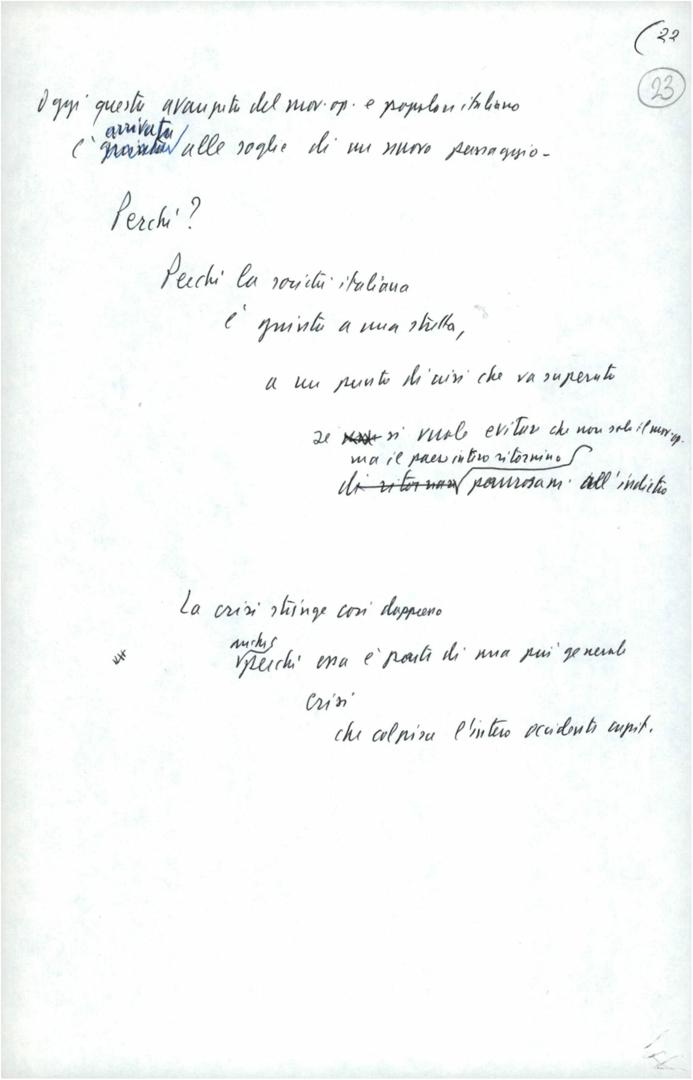 (22
23
Oggi questa avanzata del mov. op. e popolare italiano
arrivata
è giunta alle soglie di un nuovo passaggio -
Perché?
Perché la società italiana
è giunta a una stretta,
a un punto di crisi che va superato
se si vuole evitare che non solo il mov. op.
ma il paese intero ritornino
di ritornare paurosam. all'indietro
La crisi stringe così dappresso
anche
perché essa è parte di una più generale
crisi
che colpisce l'intero occidente capit.